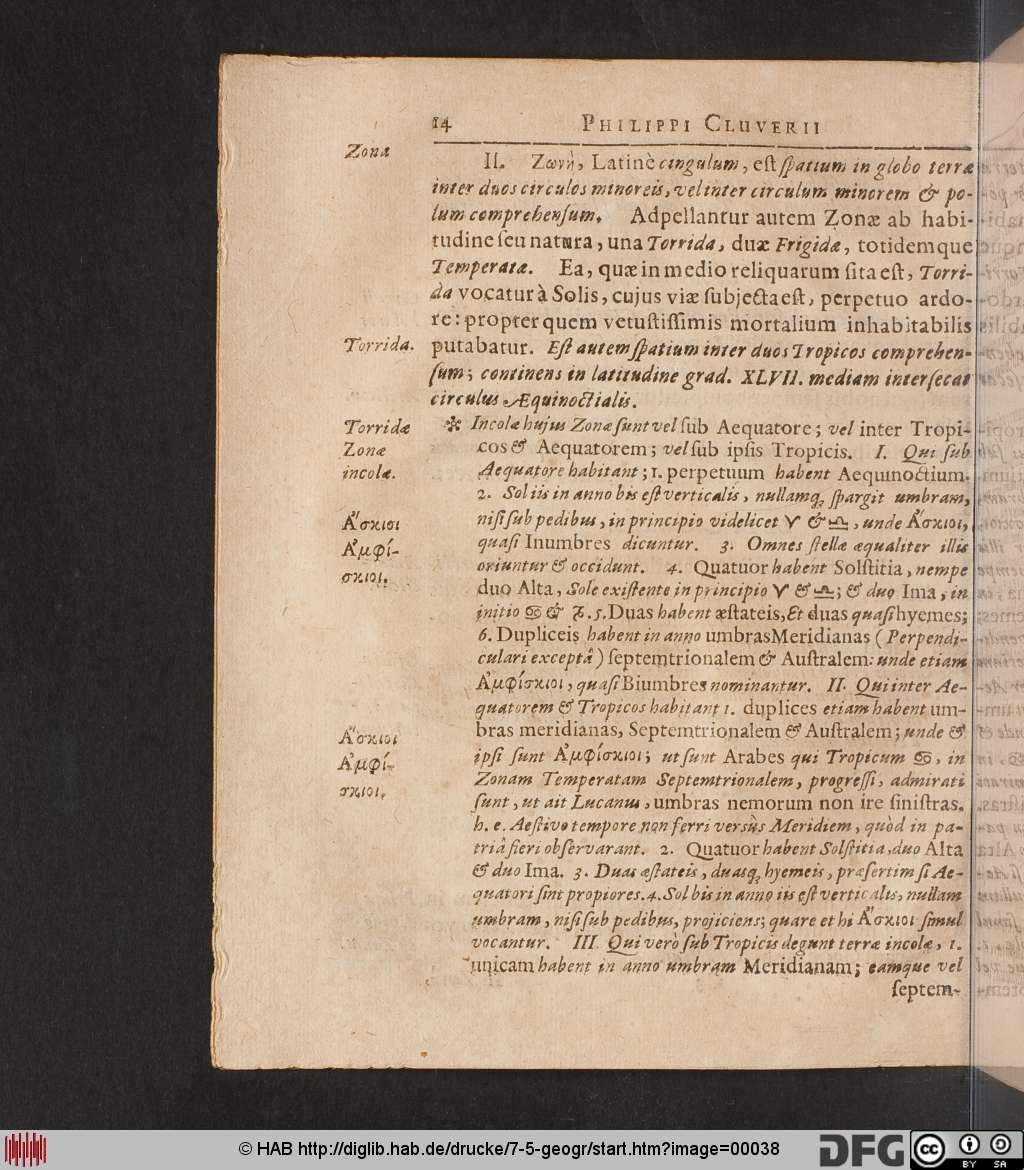 14 PHILIPPI CLUVERII
Zonæ
II. Ζωνὴ, Latinè cingulum, eſt ſpatium in globo terræ
inter duos circulos minoreis, vel inter circulum minorem & po-
lum comprehenſum. Adpellantur autem Zonæ ab habi-
tudine ſeu natura, una Torrida, duæ Frigidæ, totidemque
Temperatæ. Ea, quæ in medio reliquarum ſita eſt, Torri-
da vocatur à Solis, cujus viæ ſubjecta eſt, perpetuo ardo-
re: propter quem vetuſtiſſimis mortalium inhabitabilis
Torrida.
putabatur. Eſt autem ſpatium inter duos Tropicos comprehen-
ſum; continens in latitudine grad. XLVII. mediam interſecat
circulus Æquinoctialis.
Torridæ
Zonæ
incolæ.
✻ Incolæ hujus Zonæ ſunt vel ſub Aequatore; vel inter Tropi-
cos & Aequatorem; vel ſub ipſis Tropicis. I. Qui ſub
Aequatore habitant; 1. perpetuum habent Aequinoctium.
2. Sol iis in anno bis eſt verticalis, nullamq; ſpargit umbram,
Ἄσκιοι
Ἀμφί-
σκιοι.
niſi ſub pedibus, in principio videlicet ♈ & ♎, unde Ἄσκιοι,
quaſi Inumbres dicuntur. 3. Omnes ſtellæ æqualiter illis
oriuntur & occidunt. 4. Quatuor habent Solſtitia, nempe
duo Alta, Sole exiſtente in principio ♈ & ♎; & duo Ima, in
initio ♋ & ♑. 5. Duas habent æſtateis, Et duas quaſi hyemes;
6. Dupliceis habent in anno umbras Meridianas (Perpendi-
culari exceptâ) ſeptemtrionalem & Auſtralem: unde etiam
Ἀμφίσκιοι, quaſi Biumbres nominantur. II. Qui inter Ae-
quatorem & Tropicos habitant 1. duplices etiam habent um-
bras meridianas, Septemtrionalem & Auſtralem; unde &
Ἄσκιοι
Ἀμφί-
σκιοι.
ipſi ſunt Ἀμφίσκιοι; ut ſunt Arabes qui Tropicum ♋, in
Zonam Temperatam Septemtrionalem, progreſſi, admirati
ſunt, ut ait Lucanus, umbras nemorum non ire ſiniſtras.
h. e. Aeſtivo tempore non ferri versùs Meridiem, quòd in pa-
triâ fieri obſervarant. 2. Quatuor habent Solſtitia, duo Alta
& duo Ima. 3. Duas æſtateis, duasq; hyemeis, præſertim ſi Ae-
quatori ſint propiores. 4. Sol bis in anno iis eſt verticalis, nullam
umbram, niſi ſub pedibus, projiciens; quare et hi Ἄσκιοι ſimul
vocantur. III. Qui verò ſub Tropicis degunt terræ incolæ, 1.
unicam habent in anno umbram Meridianam; eamque vel
ſeptem-
© HAB http://diglib.hab.de/drucke/7-5-geogr/start.htm?image=00038
DFG
cc
BY SA